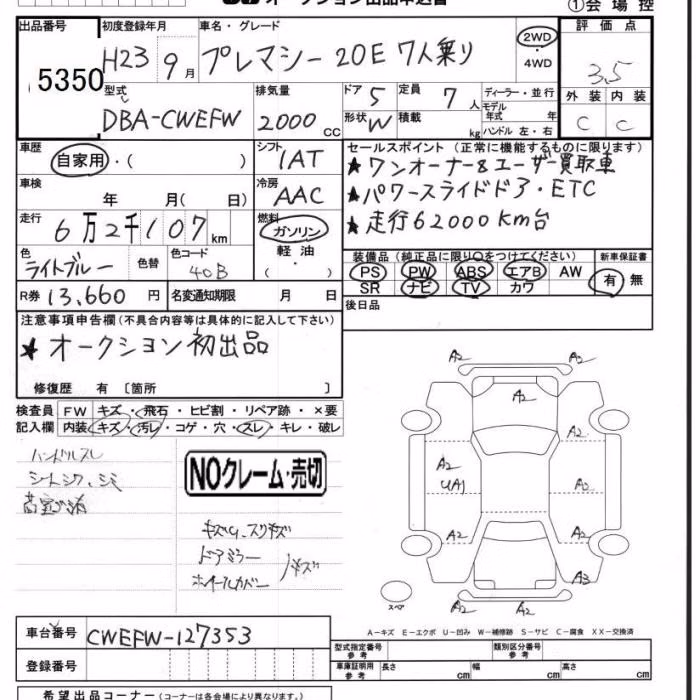 オークション出品申込書
①会場控
出品番号 5350
初度登録年月 H23 9月
車名・グレード プレマシー 20E 7人乗り
2WD・4WD
評価点 3.5
型式 DBA-CWEFW
排気量 2000 cc
ドア 5 定員 7人
形状 W 積載 kg
ディーラー・並行
モデル年式 年
ハンドル 左・右
外装 内装
C C
車歴 自家用・( )
シフト IAT
セールスポイント (正常に機能するものに限ります)
★ワンオーナー&ユーザー買取車
★パワースライドドア・ETC
★走行62000Km台
車検 年 月( 日)
冷房 AAC
走行 6万2千107km
燃料 ガソリン・軽油・( )
色 ライトブルー 色替
色コード 40B
装備品 (純正品に限り○をつけてください)
PS PW ABS エアB AW
SR ナビ TV カワ
新車保証書 有 無
R券 13,660円
名変通知期限 月 日
後日品
注意事項申告欄 (不具合内容等は具体的に記入して下さい)
★オークション初出品
修復歴 有 〔箇所 〕
検査員記入欄
FW キズ・飛石・ヒビ割・リペア跡・×要
内装 キズ・汚レ・コゲ・穴・スレ・キレ・破レ
ハンドルスレ
シートシワ、シミ
NOクレーム・売切
ドアミラー
ホイールカバー
キズ
A2 A2
A2
A2 A2
UA1
A2 A2
A2 A3
A2
スペア
A-キズ E-エクボ U-凹み W-補修跡 S-サビ C-腐食 XX-交換済
車台番号 CWEFW-127353
登録番号
型式指定番号 参考
類別区分番号 参考
車庫証明用 参考 長さ cm 幅 cm 高さ cm
希望出品コーナー (コーナーは各会場により異なります。)